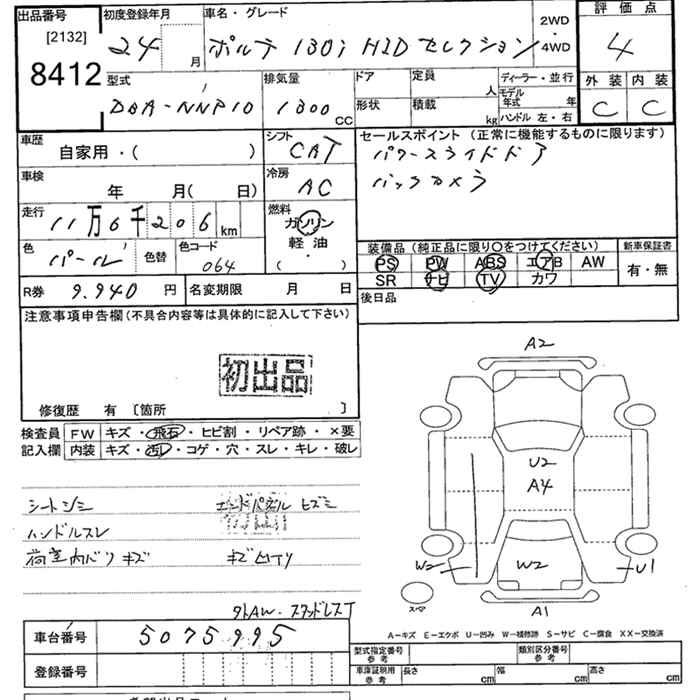 出品番号 [2132] 8412
初度登録年月 24 月
車名・グレード ポルテ 130i HID セレクション 2WD・4WD
評価点 4
外装 C 内装 C
型式 DBA-NNP10
排気量 1300 CC
ドア 形状
定員 人
積載 kg
ディーラー・並行
モデル年式 年
ハンドル 左・右
車歴 自家用・( )
シフト CAT
車検 年 月( 日)
冷房 AC
走行 11万6千206 km
燃料 ガソリン
軽油
( ・ )
色 パール 色替 色コード 064
R券 9.940 円 名変期限 月 日
セールスポイント(正常に機能するものに限ります)
パワースライドドア
バックカメラ
装備品(純正品に限り〇をつけてください) 新車保証書
PS PW ABS エアB AW 有・無
SR ナビ TV カワ
後日品
注意事項申告欄(不具合内容等は具体的に記入して下さい)
初出品
修復歴 有 〔箇所 〕
検査員 FW キズ・飛石・ヒビ割・リペア跡・×要
記入欄 内装 キズ・汚レ・コゲ・穴・スレ・キレ・破レ
シートシミ エンドパネル ヒズミ
ハンドルスレ 初出品
荷室内バリキズ キズ凹アリ
外AW.スタッドレスT
A2
U2
A4
W2 W2 U1
スペア A1
A-キズ E-エクボ U-凹み W-補修跡 S-サビ C-腐食 XX-交換済
車台番号 5075995
登録番号
型式指定番号 参考 類別区分番号 参考
車庫証明用 参考 長さ cm 幅 cm 高さ cm